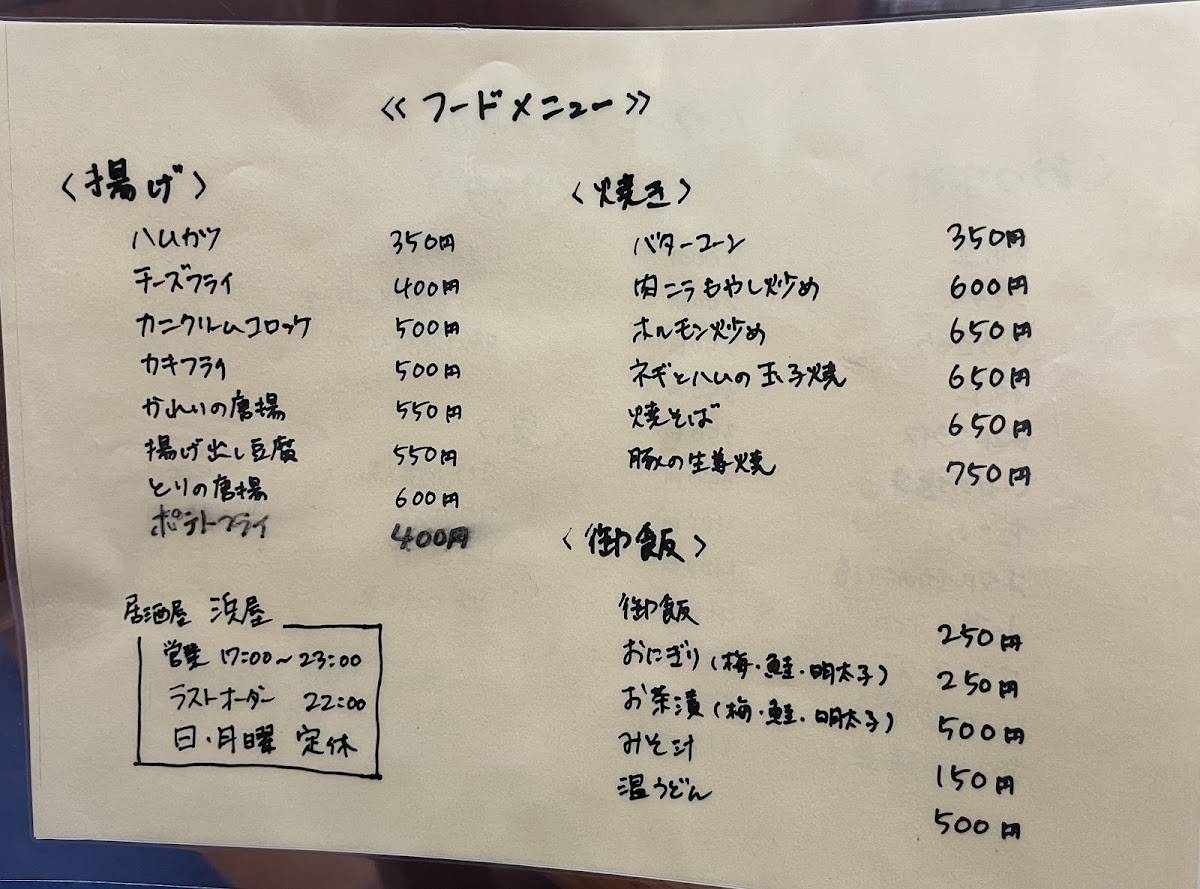 ≪ フードメニュー ≫
〈揚げ〉
ハムカツ 350円
チーズフライ 400円
カニクリームコロッケ 500円
カキフライ 500円
かれいの唐揚 550円
揚げ出し豆腐 550円
とりの唐揚 600円
ポテトフライ 400円
居酒屋 浜屋
営業 17:00~23:00
ラストオーダー 22:00
日・月曜 定休
〈焼き〉
バターコーン 350円
肉ニラもやし炒め 600円
ホルモン炒め 650円
ネギとハムの玉子焼 650円
焼そば 650円
豚の生姜焼 750円
〈御飯〉
御飯 250円
おにぎり(梅・鮭・明太子) 250円
お茶漬(梅・鮭・明太子) 500円
みそ汁 150円
温うどん 500円